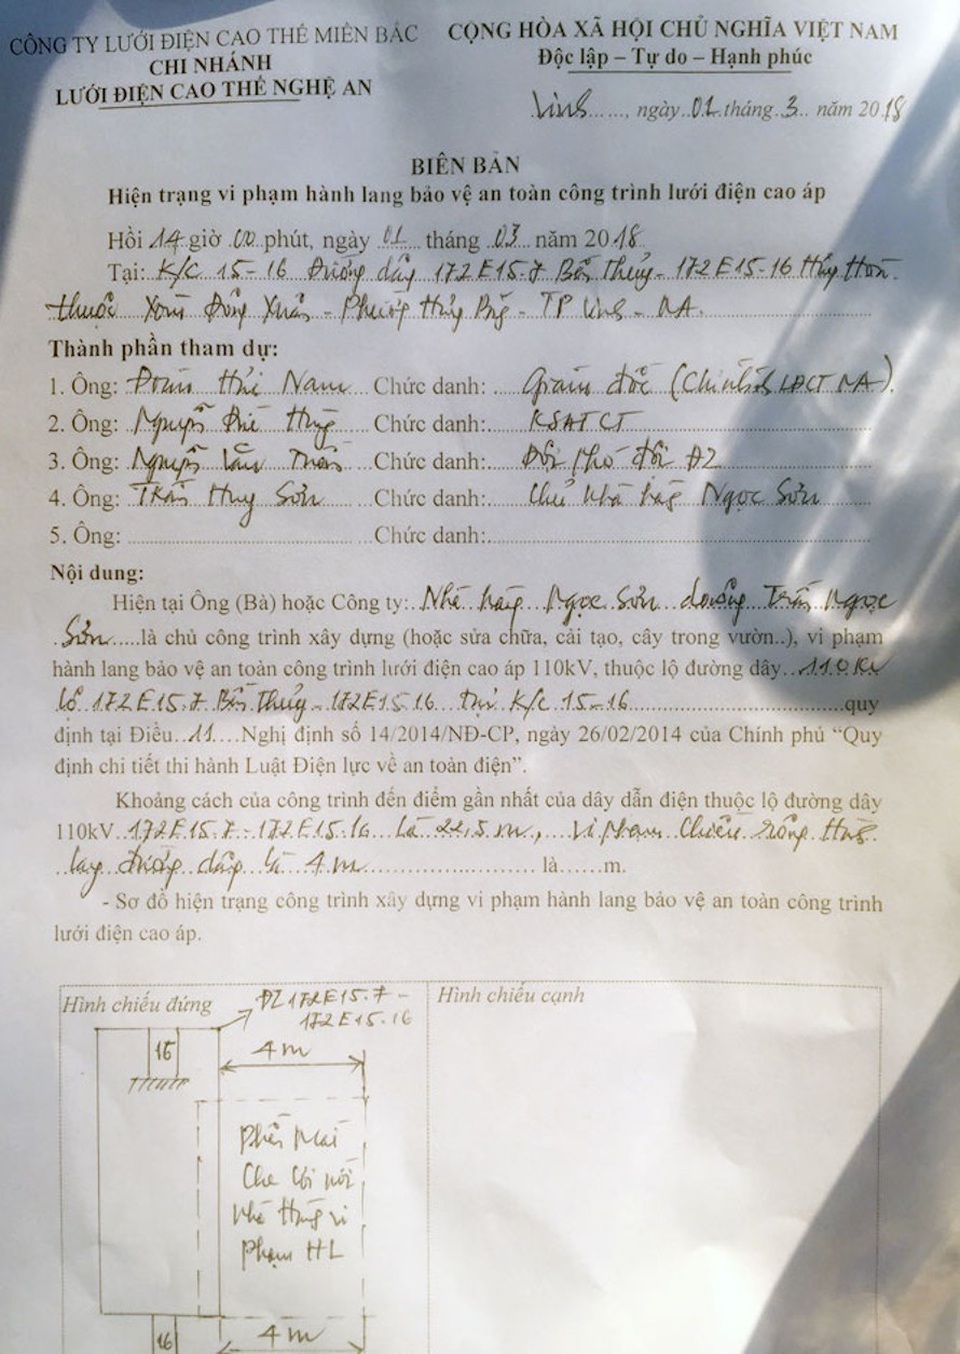 CÔNG TY LƯỚI ĐIỆN CAO THẾ MIỀN BẮC
CHI NHÁNH
LƯỚI ĐIỆN CAO THẾ NGHỆ AN
CỘNG HÒA XÃ HỘI CHỦ NGHĨA VIỆT NAM
Độc lập – Tự do – Hạnh phúc
Vinh......, ngày..01.tháng.3.. năm 2018
BIÊN BẢN
Hiện trạng vi phạm hành lang bảo vệ an toàn công trình lưới điện cao áp
Hồi 14 giờ 00 phút, ngày 01 tháng 03 năm 2018
Tại: K/C 15-16 Đường dây 172E15.7 Bến Thủy - 172E15.16
thuộc Xóm Đông Xuân - Phường - TP Vinh - NA.
Thành phần tham dự:
1. Ông: Nam Chức danh: Giám đốc (Chi nhánh LĐCT NA).
2. Ông: Nguyễn Chức danh: KSATCT
3. Ông: Nguyễn Văn Chức danh: Đội phó đội ĐZ
4. Ông: Trần Huy Sơn Chức danh: Chủ nhà hàng Ngọc Sơn
5. Ông: ........ Chức danh: ........
Nội dung:
Hiện tại Ông (Bà) hoặc Công ty: Nhà hàng Ngọc Sơn đường Trần Ngọc
Sơn.....là chủ công trình xây dựng (hoặc sửa chữa, cải tạo, cây trong vườn..), vi phạm
hành lang bảo vệ an toàn công trình lưới điện cao áp 110kV, thuộc lộ đường dây...110kV
lộ 172E15.7 Bến Thủy - 172E15.16 tại K/c 15-16........quy
định tại Điều..11....Nghị định số 14/2014/NĐ-CP, ngày 26/02/2014 của Chính phủ “Quy
định chi tiết thi hành Luật Điện lực về an toàn điện”.
Khoảng cách của công trình đến điểm gần nhất của dây dẫn điện thuộc lộ đường dây
110kV..172E15.7-172E15.16 là 22,5 m, vi phạm chiều rộng hành
lang đường dây là 4m........ là......m.
- Sơ đồ hiện trạng công trình xây dựng vi phạm hành lang bảo vệ an toàn công trình
lưới điện cao áp.
Hình chiếu đứng
ĐZ 172E15.7 -
172E15.16
Hình chiếu cạnh
15
4m
Phần Mái
Che
Nhà hàng vi
phạm HL
16
4m